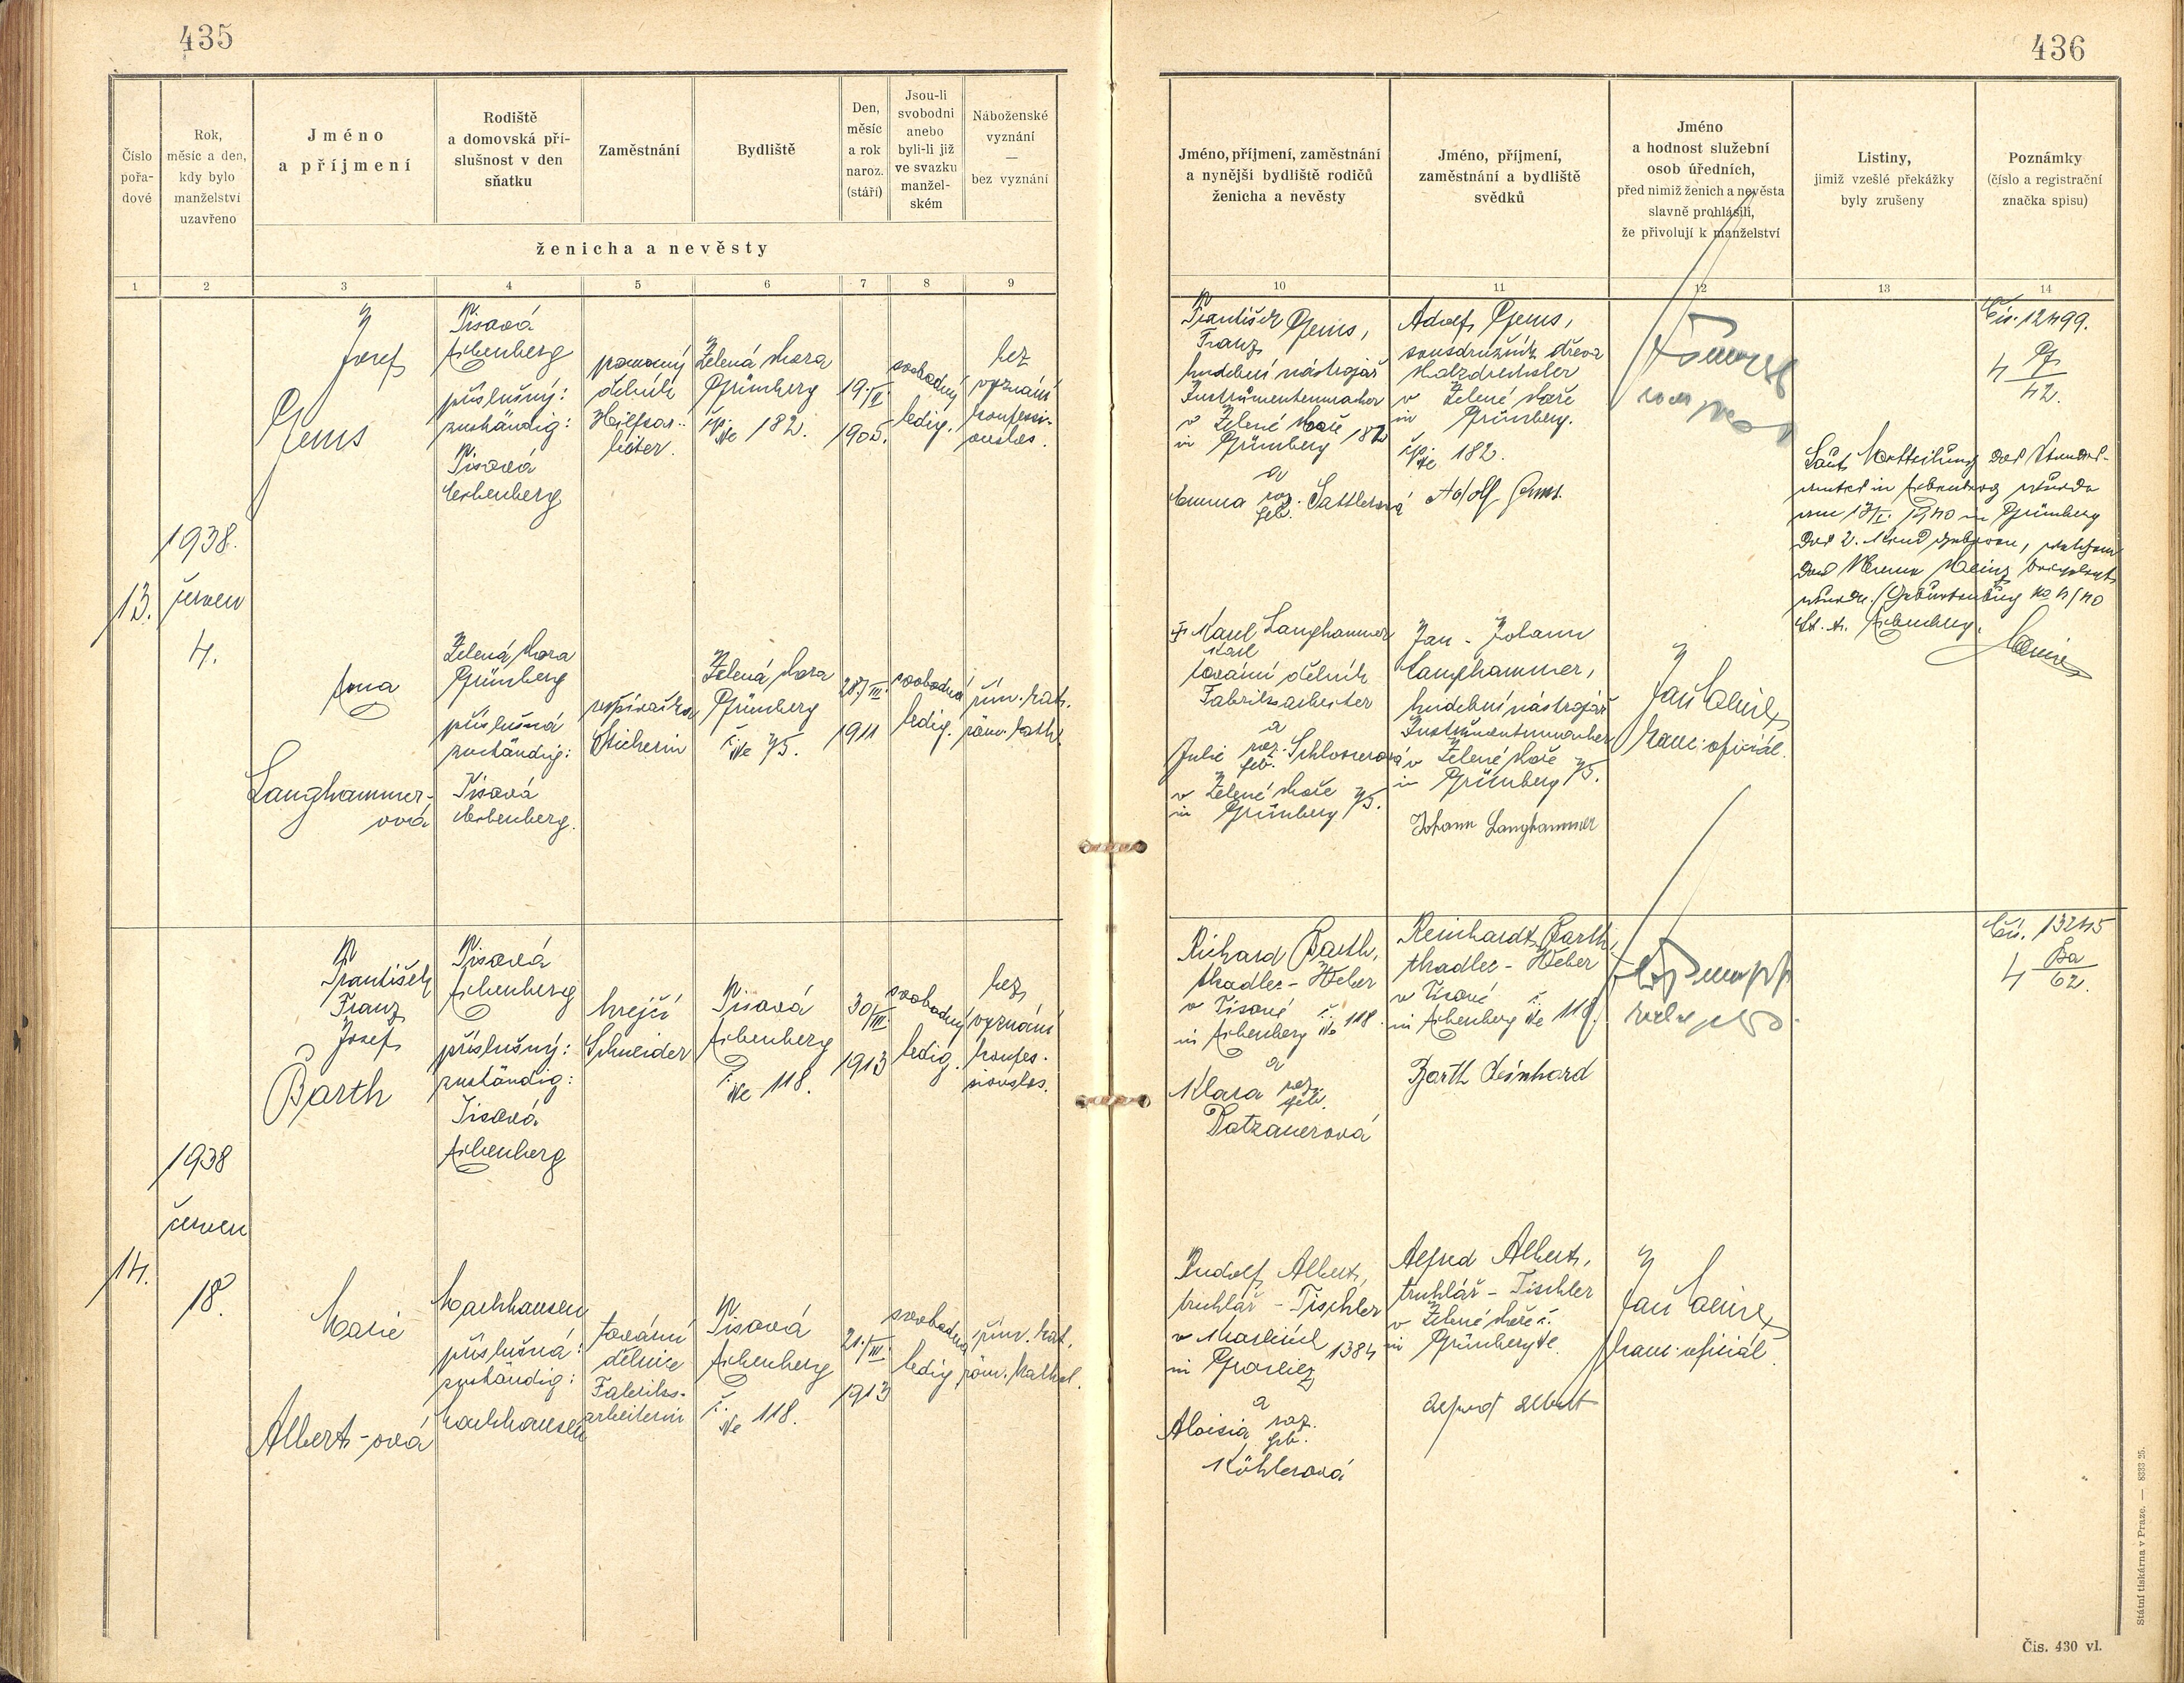 435
Číslo
pořa-
dové
Rok,
měsíc a den,
kdy bylo
manželství
uzavřeno
Jméno
a příjmení
Rodiště
a domovská pří-
slušnost v den
sňatku
Zaměstnání
Bydliště
Den,
měsíc
a rok
naroz.
(stáří)
Jsou-li
svobodni
anebo
byli-li již
ve svazku
manžel-
ském
Náboženské
vyznání
—
bez vyznání
ženicha a nevěsty
1 2 3 4 5 6 7 8 9
13.
1938.
červen
4.
Josef
Gems
Tisová
Eibenberg
příslušný:
zuständig:
Tisová
Eibenberg
pomocný
dělník
Hilfsar-
beiter.
Zelená Hora
Grünberg
čp. Nr. 182.
19./II.
1905.
svobodný
ledig.
bez
vyznání
konfessi-
onslos.
Anna
Langhammer-
ová
Zelená Hora
Grünberg
příslušná
zuständig:
Tisová
Eibenberg.
vyšívačka
Stickerin
Zelená Hora
Grünberg
č. Nr. 75.
28./III.
1911
svobodná
ledig.
řím. kat.
röm. kath.
14.
1938
červen
18.
František
Franz
Josef
Barth
Tisová
Eibenberg
příslušný:
zuständig:
Tisová
Eibenberg
krejčí
Schneider
Tisová
Eibenberg
č. Nr. 118.
30./III.
1913
svobodný
ledig.
bez
vyznání
konfes-
sionslos.
Marie
Albert-ová
Markhausen
příslušná:
zuständig:
Markhausen
tovární
dělnice
Fabriks-
arbeiterin
Tisová
Eibenberg
č. Nr. 118.
21./III.
1913
svobodná
ledig
řím. kat.
röm. kathol.
436
Jméno, příjmení, zaměstnání
a nynější bydliště rodičů
ženicha a nevěsty
Jméno, příjmení,
zaměstnání a bydliště
svědků
Jméno
a hodnost služební
osob úředních,
před nimiž ženich a nevěsta
slavně prohlásili,
že přivolují k manželství
Listiny,
jimiž vzešlé překážky
byly zrušeny
Poznámky
(číslo a registrační
značka spisu)
10 11 12 13 14
František Gems,
Franz
hudební nástrojař
Instrumentenmacher
v Zelené Hoře
in Grünberg 182
a
Emma roz. geb. Sattlerová
Adolf Gems,
soustružník dřeva
Holzdrechsler
v Zelené Hoře
in Grünberg.
čp. Nr. 182.
Adolf Gems.
Čís. 12499.
4 G/42.
Laut Mitteilung des Standes-
amtes in Eibenberg wurde
am 13/I. 1940 in Grünberg
das 2. Kind geboren, welchem
der Name Heinz beigelegt
wurde.
St. A. Eibenberg.
† Karel Langhammer
Karl
tovární dělník
Fabriksarbeiter
a
Julie roz. geb. Schlosserová
v Zelené Hoře
in Grünberg 75.
Jan - Johann
Langhammer,
hudební nástrojař
Instrumentenmacher
v Zelené Hoře
in Grünberg 75.
Johann Langhammer
Jan
kanc. oficiál.
Richard Barth,
tkadlec - Weber
v Tisové
in Eibenberg č. Nr. 118.
a
Klara roz. geb.
Patzanerová
Reinhardt Barth,
tkadlec - Weber
v Tisové
in Eibenberg č. Nr. 118.
Barth Reinhard
Čís. 13245
4 Ba/62.
Rudolf Albert,
truhlář - Tischler
v Kraslicích
in Graslitz 1384
a
Aloisia roz. geb.
Köhlerová
Alfred Albert,
truhlář - Tischler
v Zelené Hoře č.
in Grünberg Nr.
Alfred Albert
Jan
kanc. oficiál
Státní tiskárna v Praze. — 8333 25.
Čís. 430 vl.